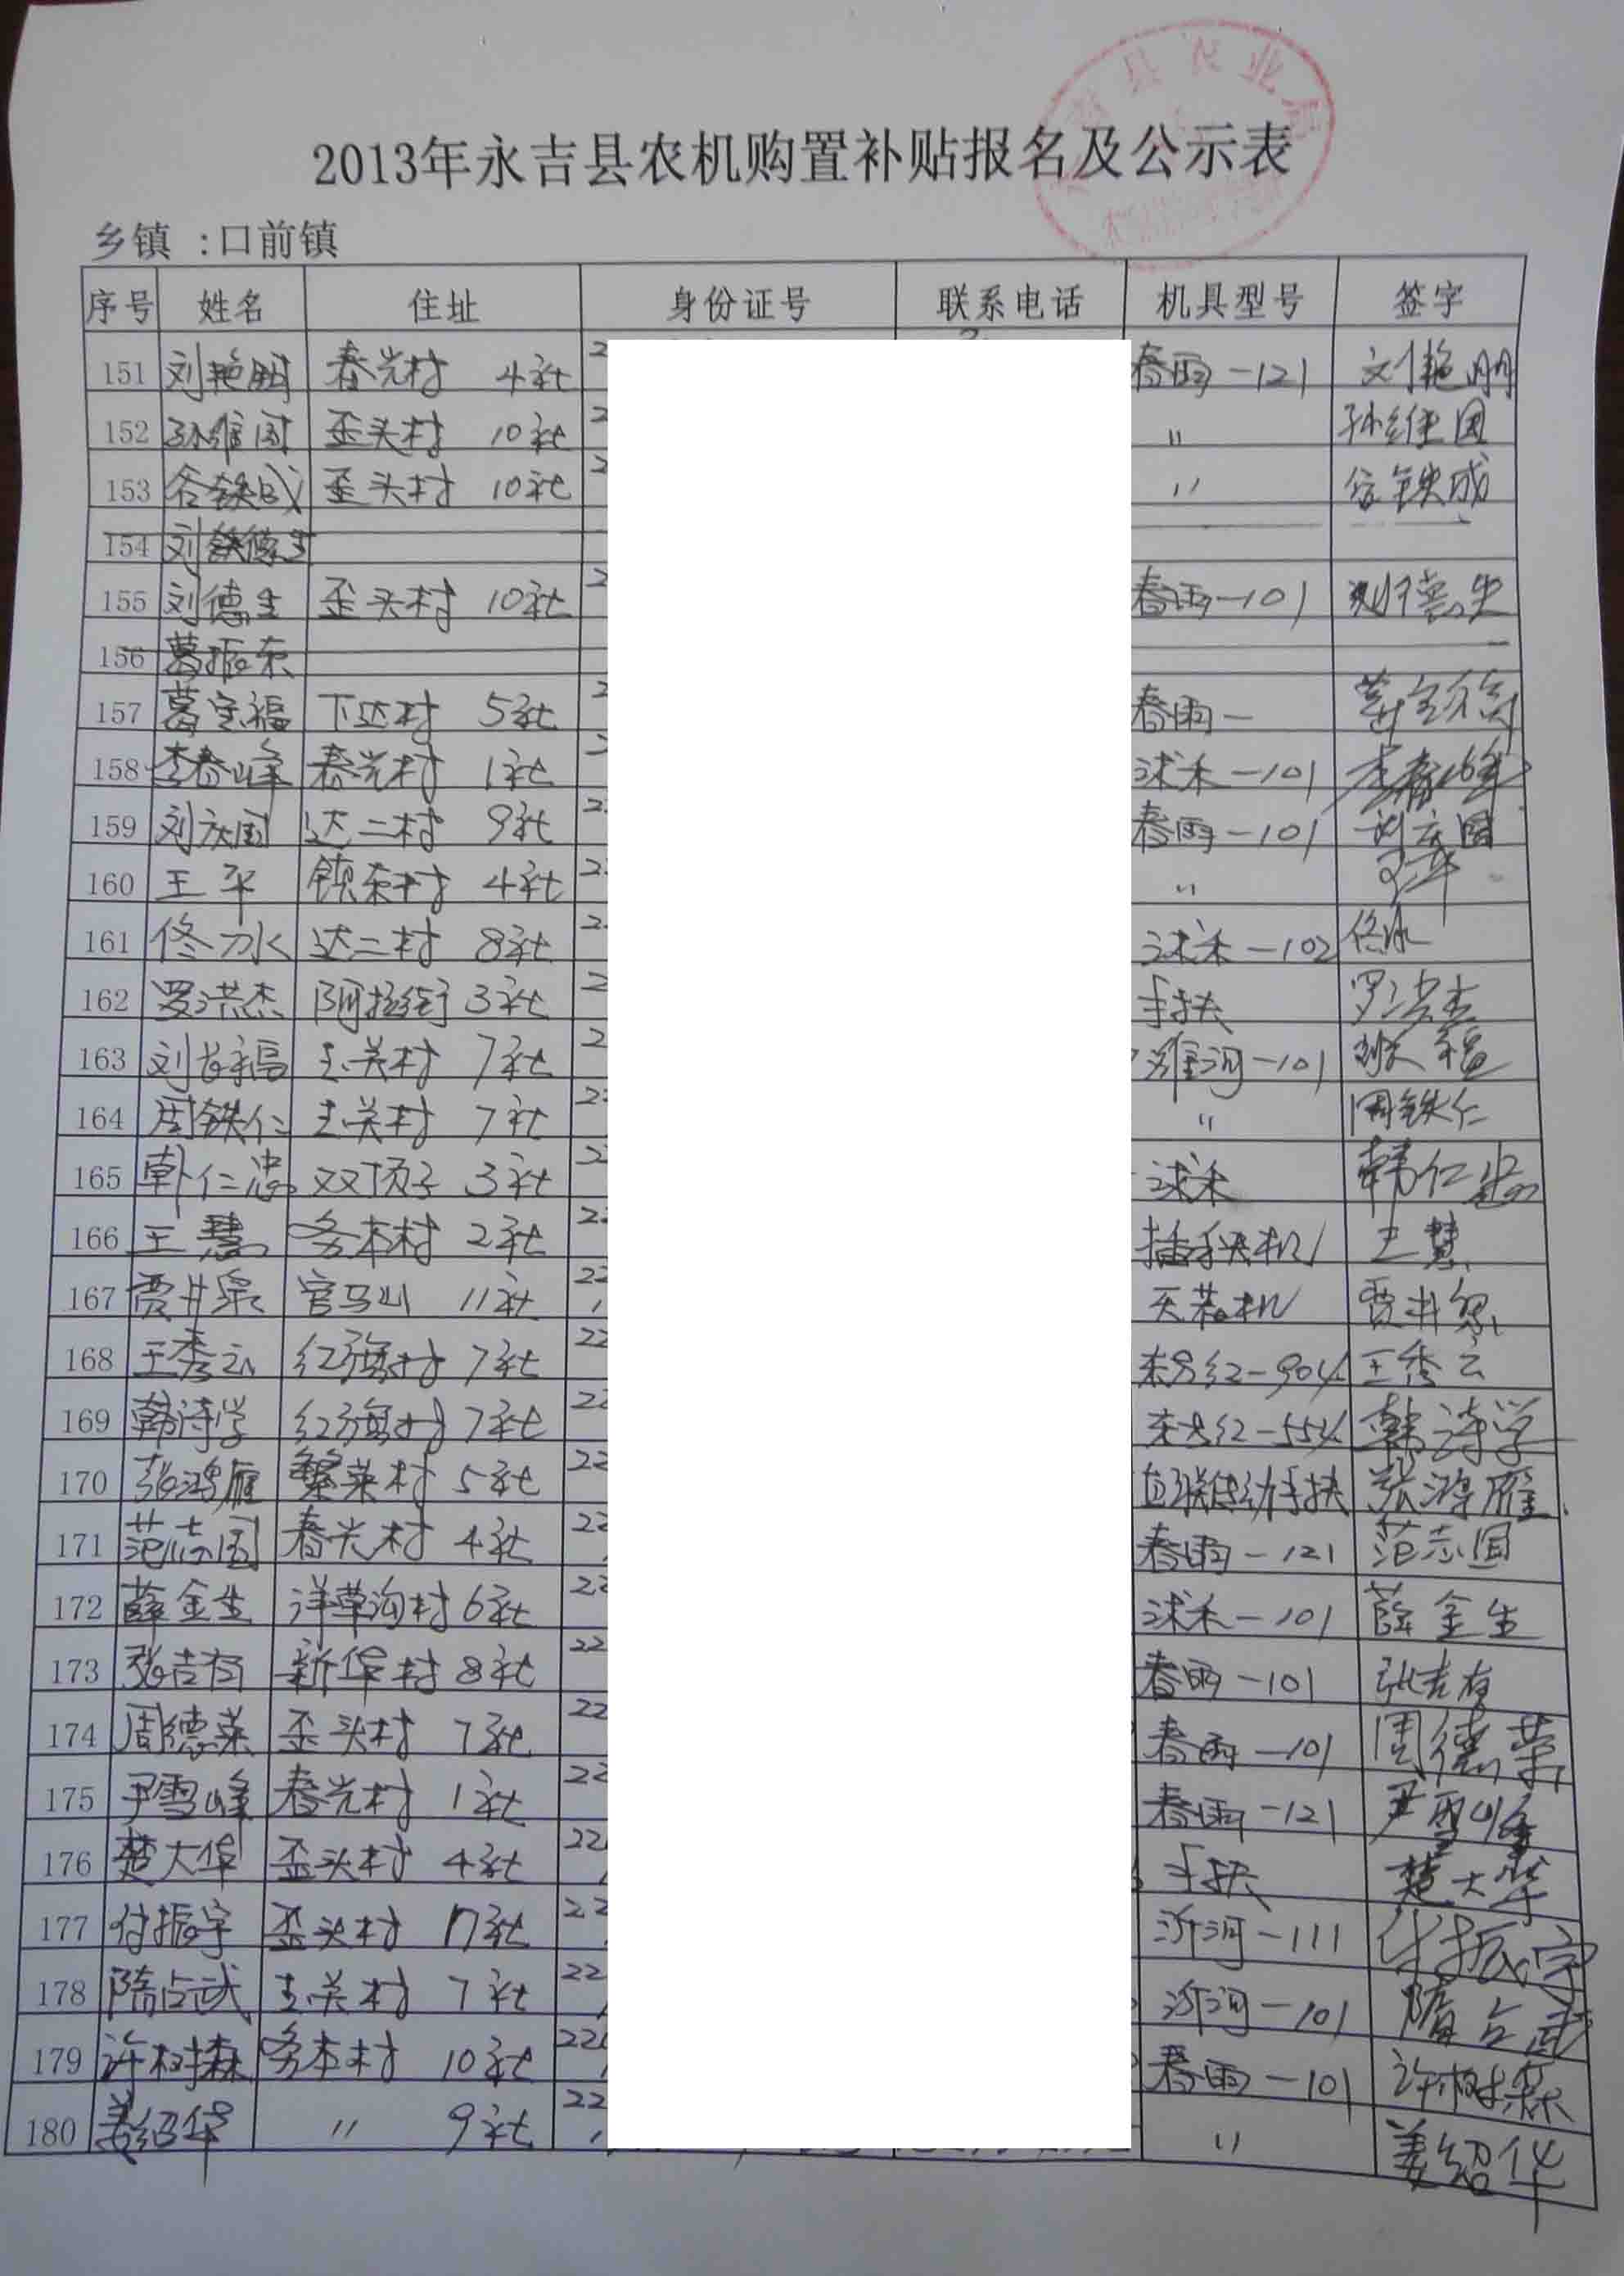 2013年永吉县农机购置补贴报名及公示表
县农业局
乡镇 :口前镇
序号 姓名 住址 身份证号 联系电话 机具型号 签字
151 刘艳明 春光村 4社 2 春雨-121 刘艳明
152 孙维国 歪头村 10社 2 〃 孙维国
153 佟铁成 歪头村 10社 2 〃 佟铁成
154 刘德生
155 刘德生 歪头村 10社 2 春雨-101 刘德生
156 葛振东
157 葛宝福 下达村 5社 2 春雨- 葛宝福
158 李春峰 春光村 1社 2 沭禾-101 李春峰
159 刘庆国 达二村 9社 2 春雨-101 刘庆国
160 王平 锦东村 4社 2 〃 王平
161 佟冰 达二村 8社 2 沭禾-102 佟冰
162 罗洪杰 阿拉街 3社 2 手扶 罗洪杰
163 刘长福 王关村 7社 2 潍河-101 刘长福
164 周铁仁 王关村 7社 22 〃 周铁仁
165 韩仁忠 双顶子 3社 22 沭禾 韩仁忠
166 王慧 务本村 2社 22 插秧机 王慧
167 贾井泉 官马山 11社 22 灭茬机 贾井泉
168 王秀云 红旗村 7社 22 东方红-904 王秀云
169 韩诗学 红旗村 7社 22 东方红-554 韩诗学
170 张鸿雁 繁荣村 5社 22 直联传动手扶 张鸿雁
171 范志国 春光村 4社 22 春雨-121 范志国
172 薛金生 洋草沟村 6社 22 沭禾-101 薛金生
173 张吉有 新华村 8社 22 春雨-101 张吉有
174 周德荣 歪头村 7社 22 春雨-101 周德荣
175 尹雪峰 春光村 1社 22 春雨-121 尹雪峰
176 楚大华 歪头村 4社 22 手扶 楚大华
177 付振宇 歪头村 17社 22 沂河-111 付振宇
178 隋占武 王关村 7社 22 沂河-101 隋占武
179 许树森 务本村 10社 220 春雨-101 许树森
180 姜绍华 〃 9社 22 〃 姜绍华